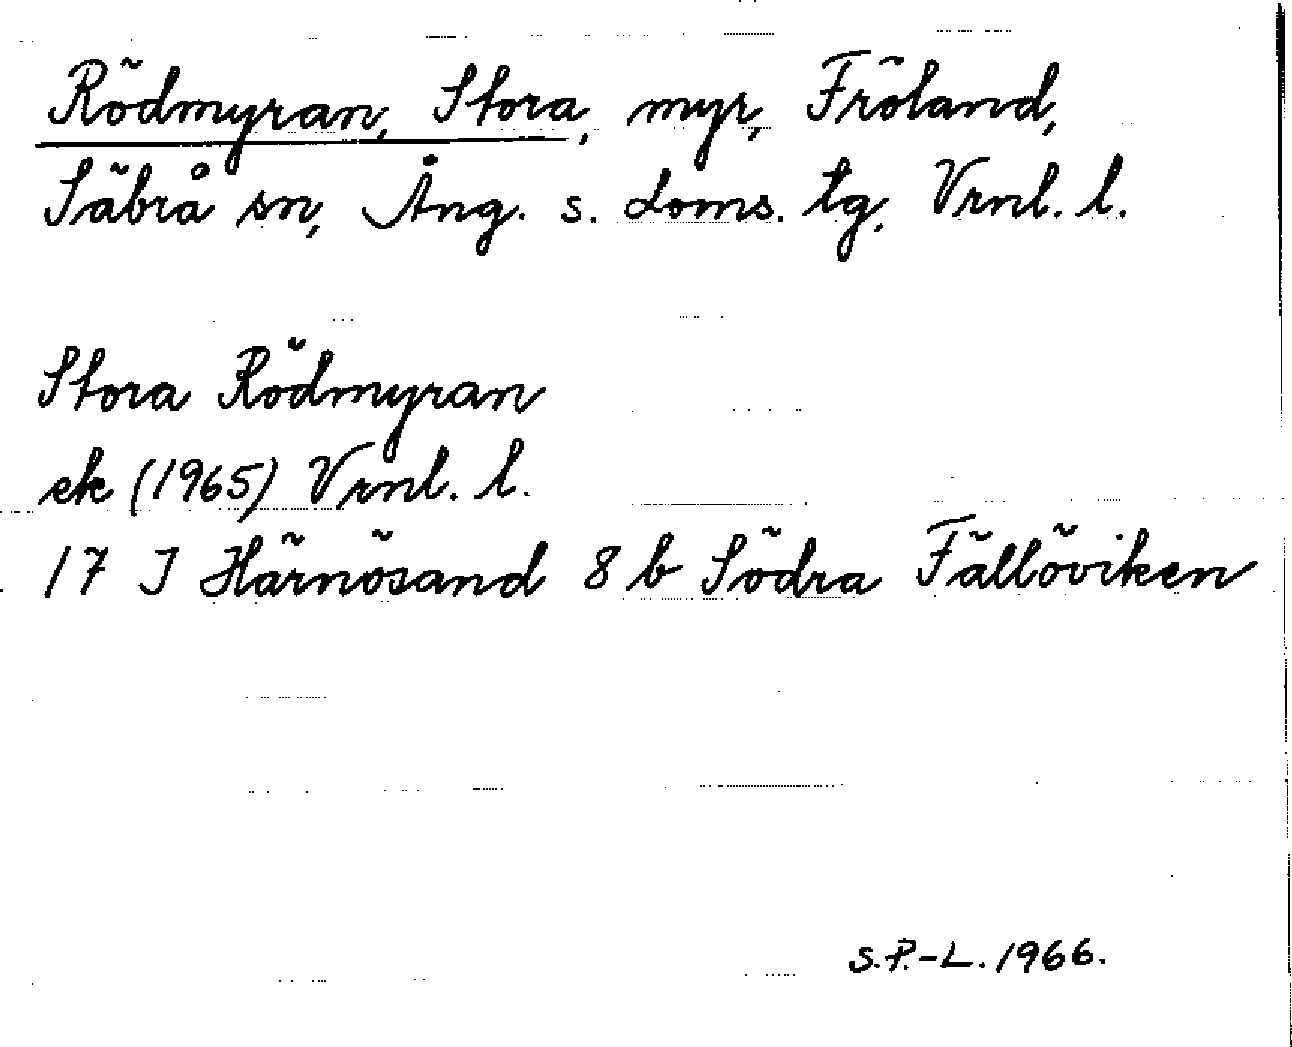 Rödmyran, Stora, myr, Fröland,
Säbrå sn, Ång. s. doms. tg. Vrnl. l.
Stora Rödmyran
ek (1965) Vrnl. l.
17 I Härnösand 8 b Södra Fällöviken
S.P.-L. 1966.